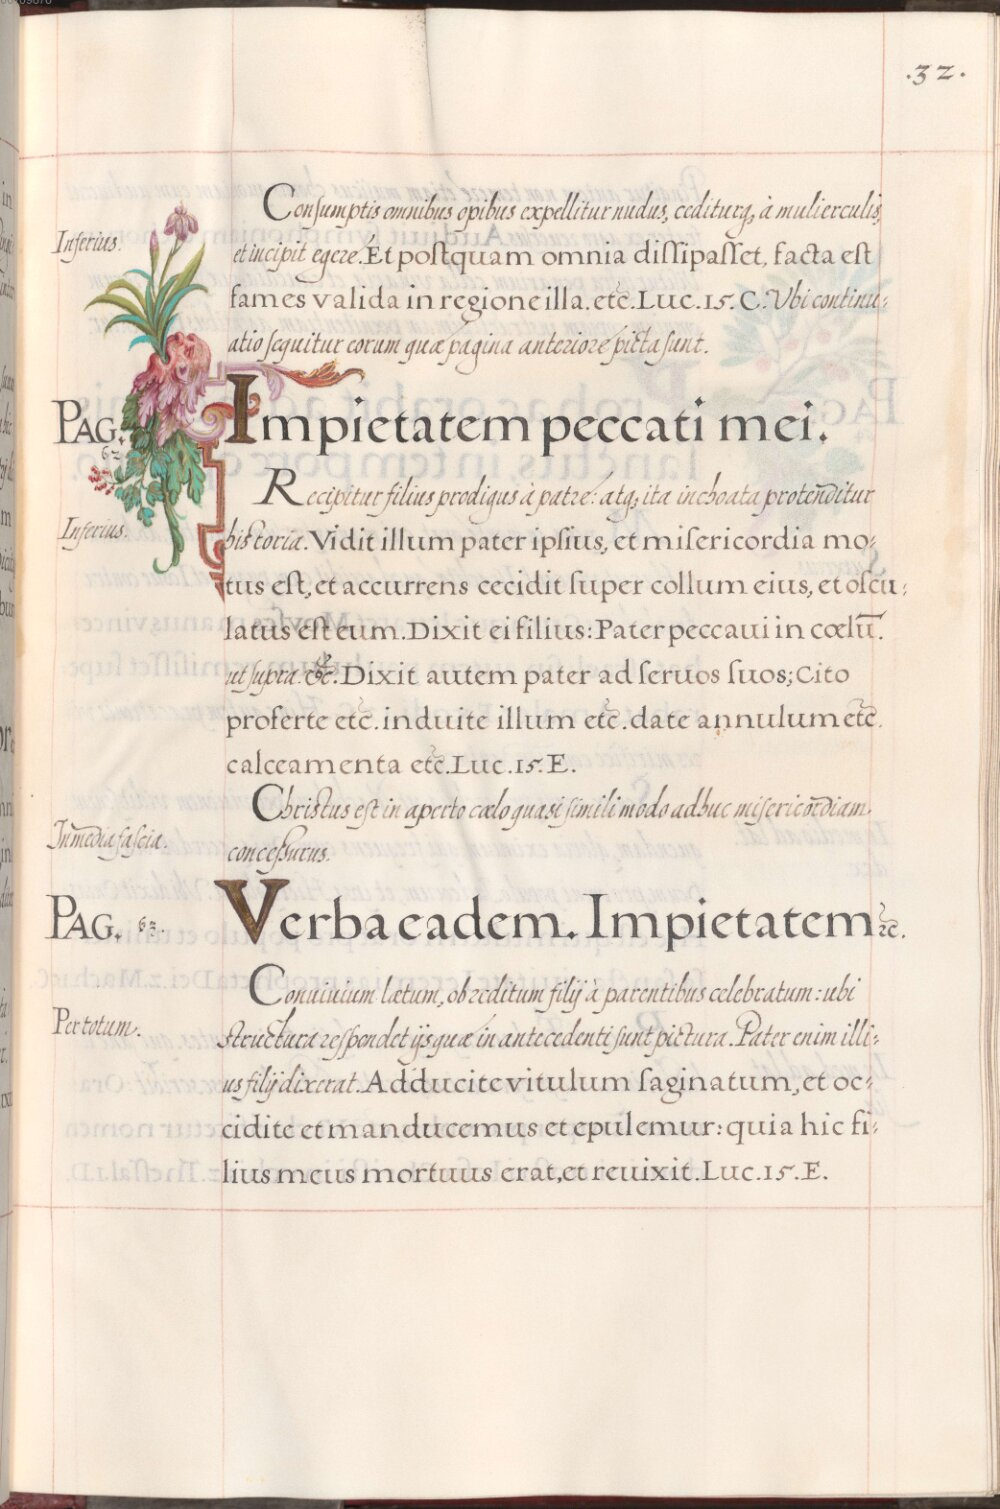 .32.
Consumptis omnibus opibus expellitur nudus, cæditurq, à mulierculis,
Inferius.
et incipit egere. Et postquam omnia dissipasset, facta est
fames valida in regione illa. etc. Luc. 15. C. Vbi continu-
atio sequitur eorum quæ pagina anteriore picta sunt.
PAG. 62
Impietatem peccati mei.
Recipitur filius prodigus à patre: atq, ita inchoata protenditur
Inferius.
historia. Vidit illum pater ipsius, et misericordia mo-
tus est, et accurrens cecidit super collum eius, et oscu-
latus est eum. Dixit ei filius: Pater peccaui in cœlū.
ut supra. &c. Dixit autem pater ad seruos suos; Cito
proferte etc. induite illum etc. date annulum etc.
calceamenta etc. Luc. 15. E.
Christus est in aperto cælo quasi simili modo adhuc misericordiam
In media fascia.
concessurus.
PAG. 63.
Verba eadem. Impietatem etc.
Conuiuium lætum, ob reditum filij à parentibus celebratum: ubi
Per totum.
structura respondet ijs quæ in antecedenti sunt pictura. Pater enim illi-
us filij dixerat. Adducite vitulum saginatum, et oc-
cidite et manducemus et epulemur: quia hic fi-
lius meus mortuus erat, et reuixit. Luc. 15. E.